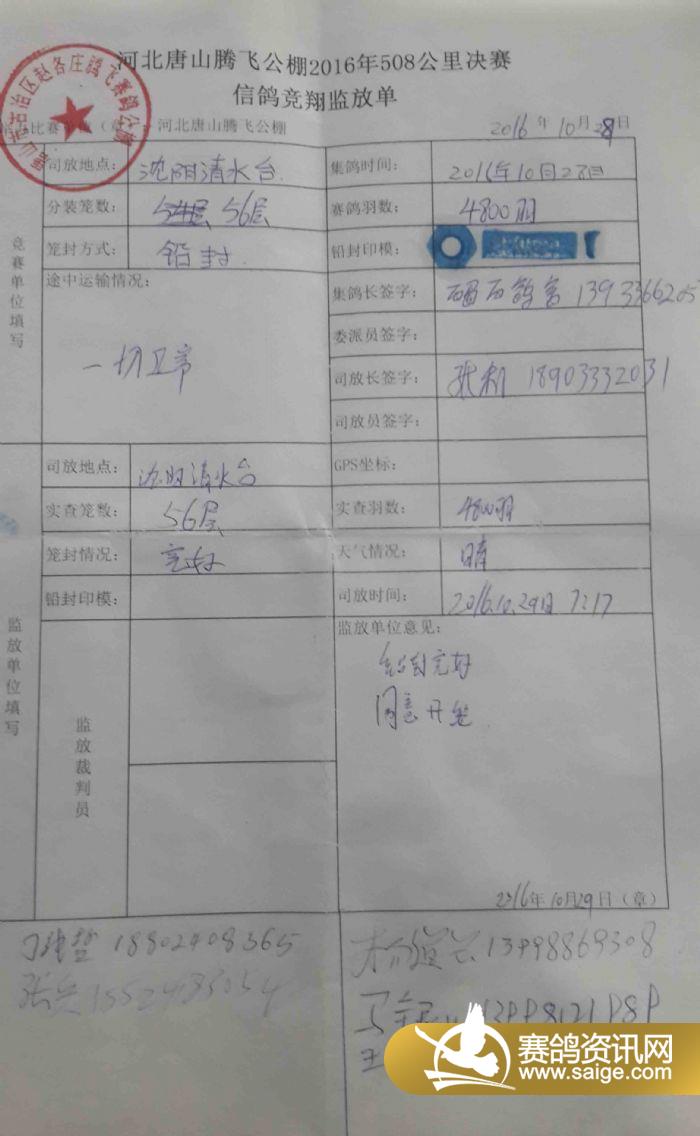 河北唐山腾飞公棚2016年508公里决赛
信鸽竞翔监放单
河北唐山腾飞公棚
2016年10月28日
竞赛单位填写
司放地点: 沈阳清水台
集鸽时间: 2016年10月28日
分装笼数: 56层
赛鸽羽数: 4800羽
笼封方式: 铅封
铅封印模:
途中运输情况:
一切正常
集鸽长签字:
委派员签字:
司放长签字: 18903332031
司放员签字:
监放单位填写
司放地点: 沈阳清水台
GPS坐标:
实查笼数: 56层
实查羽数: 4800羽
笼封情况: 完好
天气情况: 晴
铅封印模:
司放时间: 2016.10.29日 7:17
监放裁判员
监放单位意见:
铅封完好
同意开笼
2016年10月29日(章)
18802408365
13998869308
赛鸽资讯网
www.saige.com